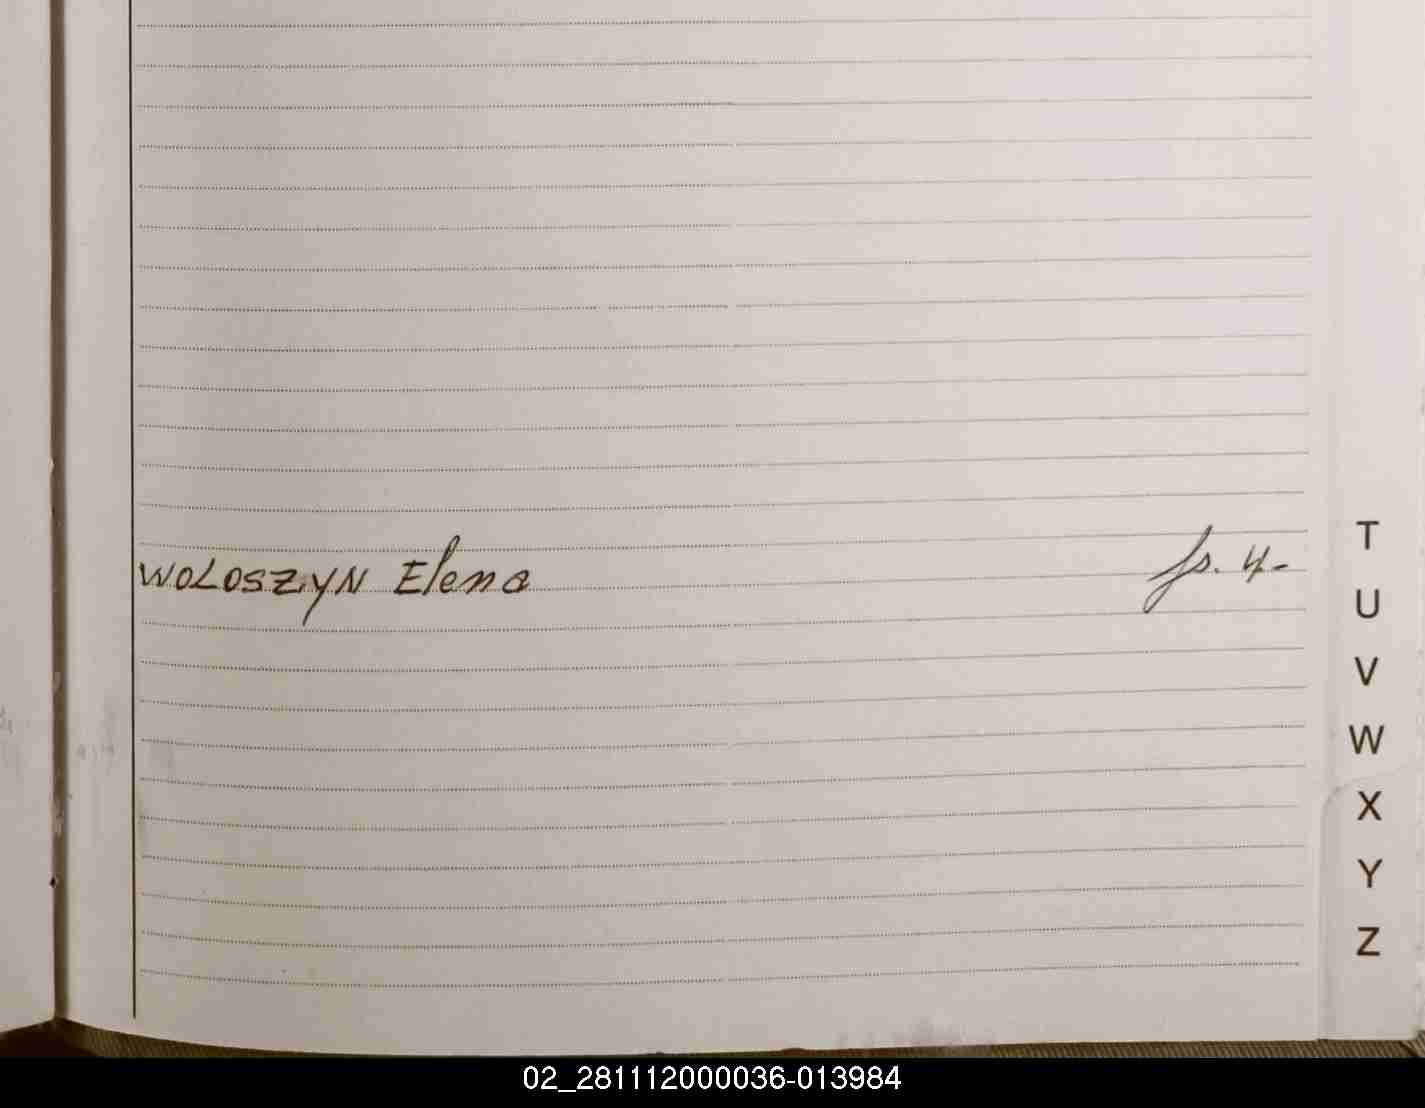 WOLOSZYN Elena fs. 4-
T
U
V
W
X
Y
Z
02_281112000036-013984